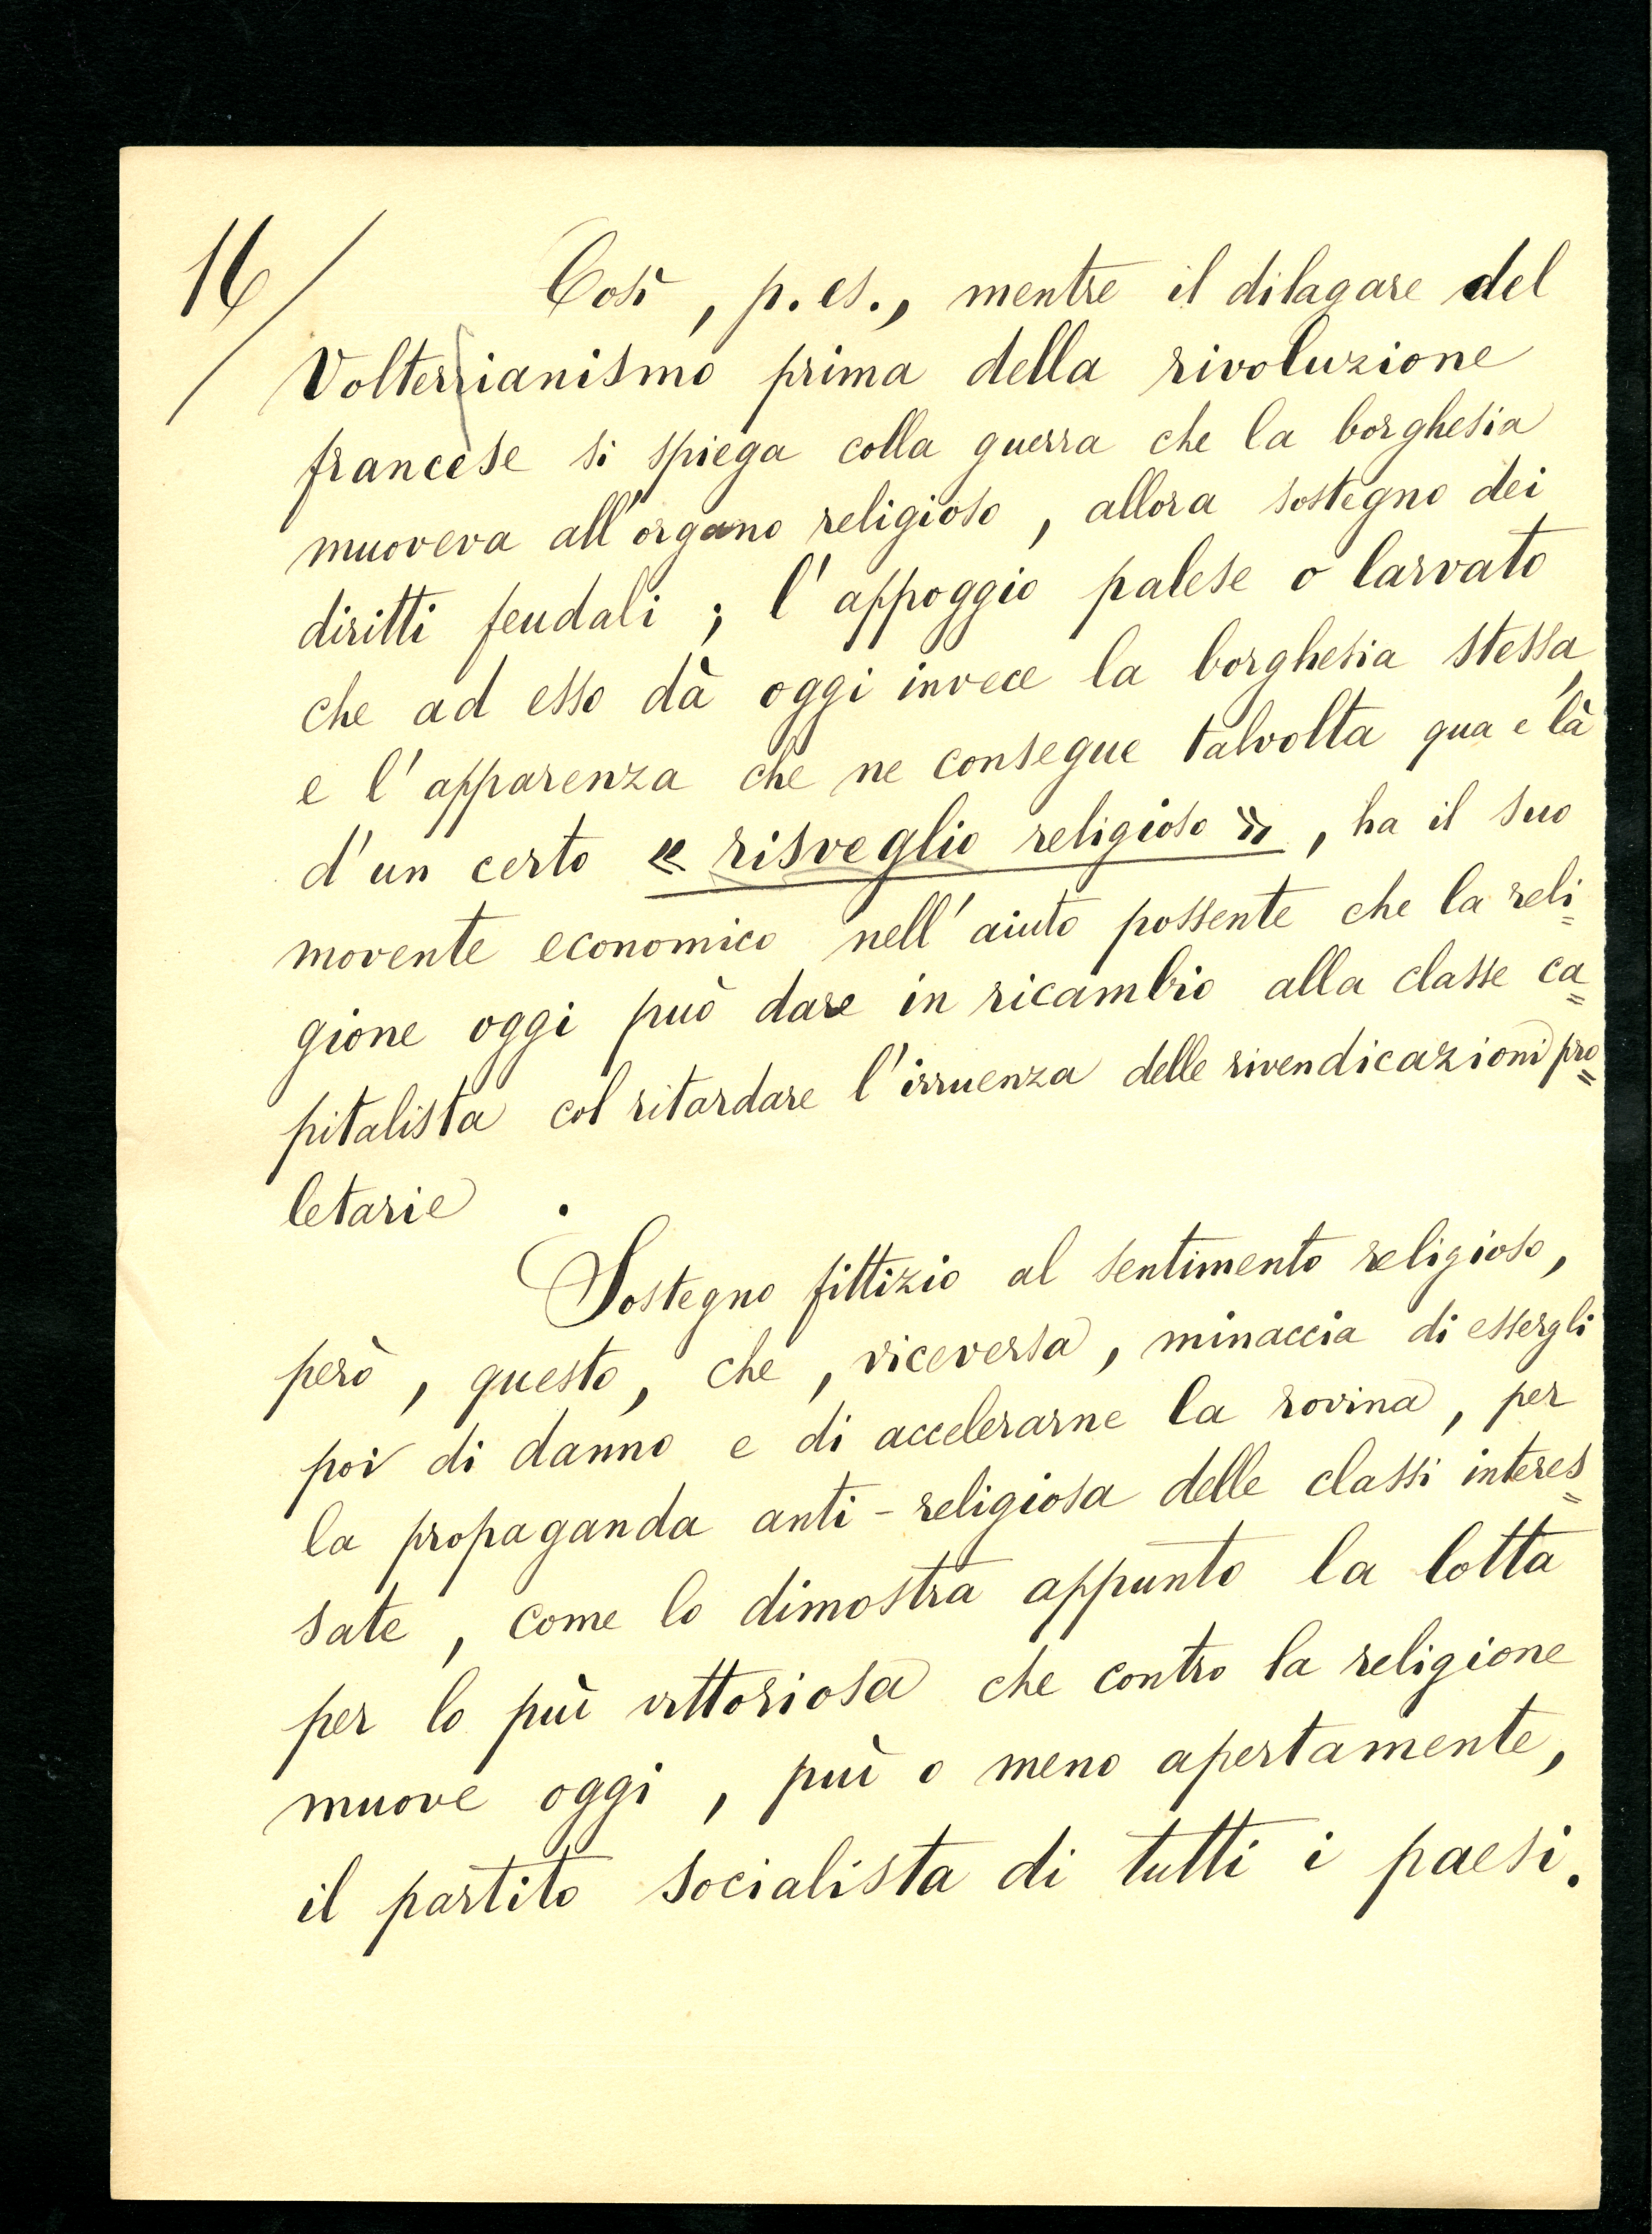 16/
Così, p. es., mentre il dilagare del
Volterrianismo prima della rivoluzione
francese si spiega colla guerra che la borghesia
muoveva all'organo religioso, allora sostegno dei
diritti feudali; l'appoggio palese o larvato
che ad esso dà oggi invece la borghesia stessa,
e l'apparenza che ne consegue talvolta qua e là
d'un certo « risveglio religioso », ha il suo
movente economico nell'aiuto possente che la reli=
gione oggi può dare in ricambio alla classe ca=
pitalista col ritardare l'irruenza delle rivendicazioni pro=
letarie.
Sostegno fittizio al sentimento religioso,
però, questo, che, viceversa, minaccia di essergli
poi di danno e di accelerarne la rovina, per
la propaganda anti-religiosa delle classi interes=
sate, come lo dimostra appunto la lotta
per lo più vittoriosa che contro la religione
muove oggi, più o meno apertamente,
il partito socialista di tutti i paesi.